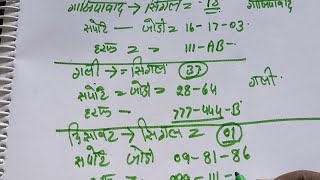 गाजियाबाद → सिंगल = 18 गाजियाबाद
सपोर्ट — जोड़ी = 16-17-03.
हरूफ = = 111-AB-
गली → = सिंगल (37) गली.
सपोर्ट = जोड़ी = 28-64
हरूफ - 777-444-B
दिसावट → सिंगल = (01)
सपोर्ट जोड़ी 09-81-86
हरूफ =